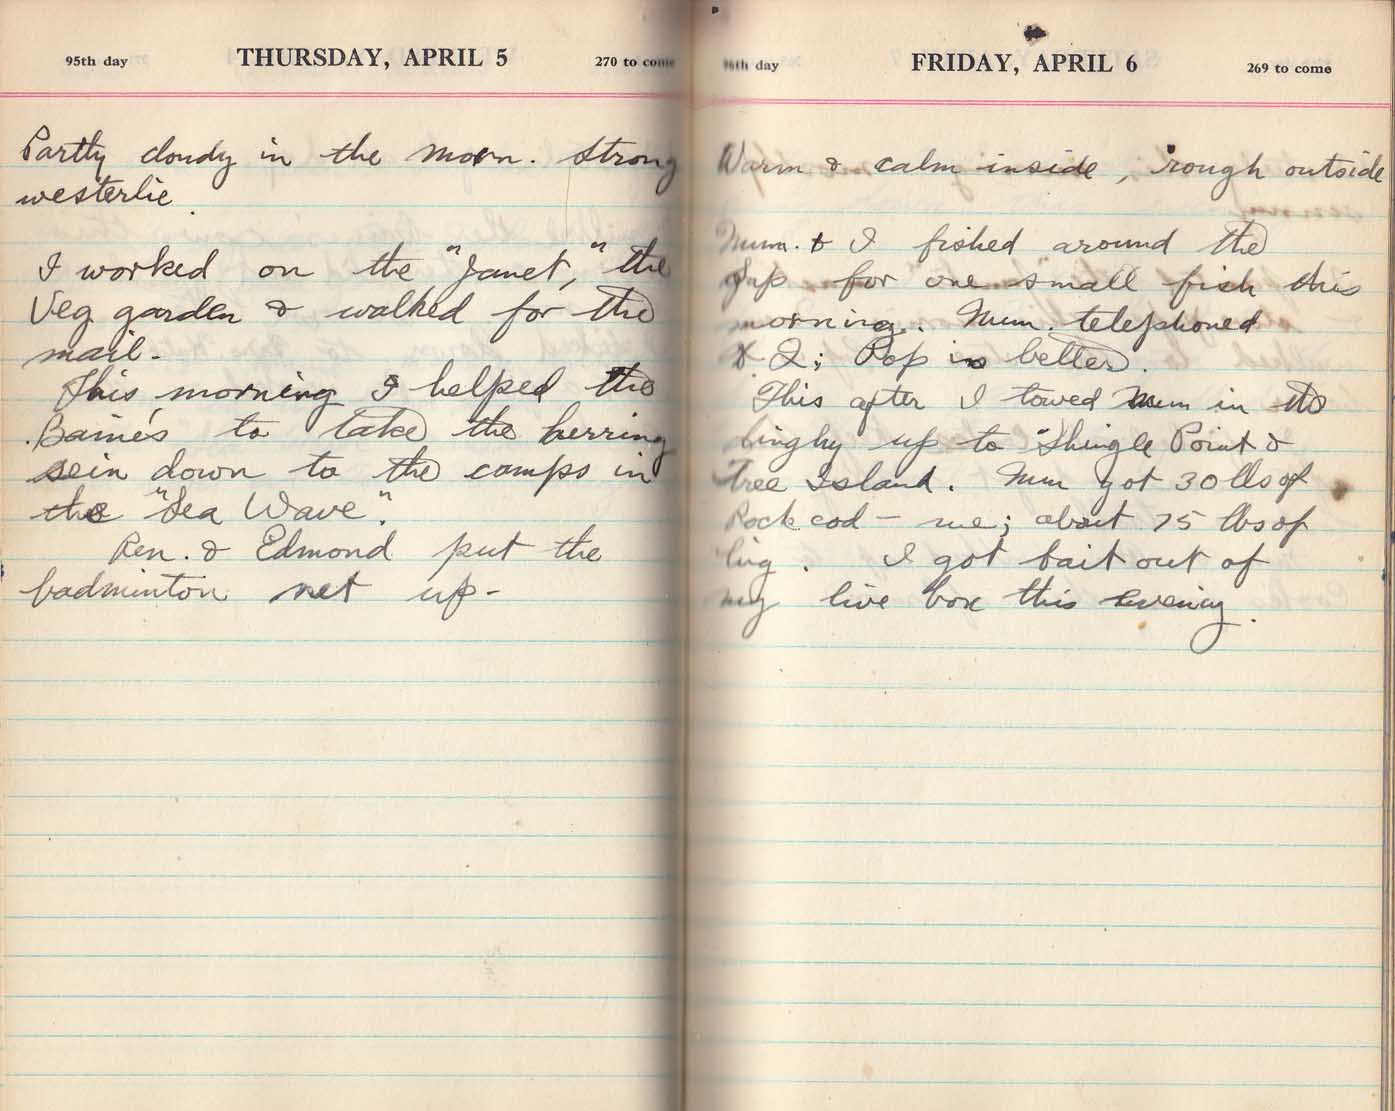 95th day THURSDAY, APRIL 5 270 to come
Partly cloudy in the morn. Strong
westerlie.
I worked on the "Janet," the
Veg garden & walked for the
mail.
This morning I helped the
Baine's to take the herring
sein down to the camps in
the "Sea Wave".
Ren. & Edmond put the
badminton net up-
96th day FRIDAY, APRIL 6 269 to come
Warm & calm inside, rough outside
Mum. & I fished around the
Gap for one small fish this
morning. Mum. telephoned
Pop is better.
This after I towed Mum in the
dinghy up to Shingle Point &
Tree Island. Mum got 30 lbs of
Rock cod - me; about 75 lbs of
ling. I got bait out of
my live box this evening.